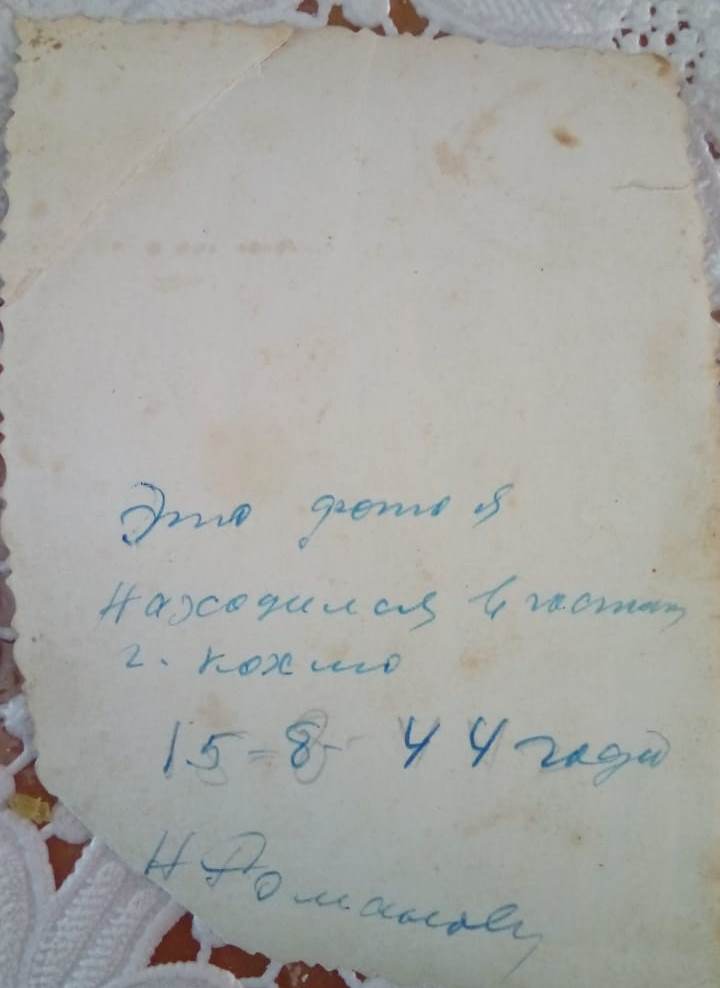 Это фото я
находился в части
г. кохмо
15-8-44 года
Н Романов